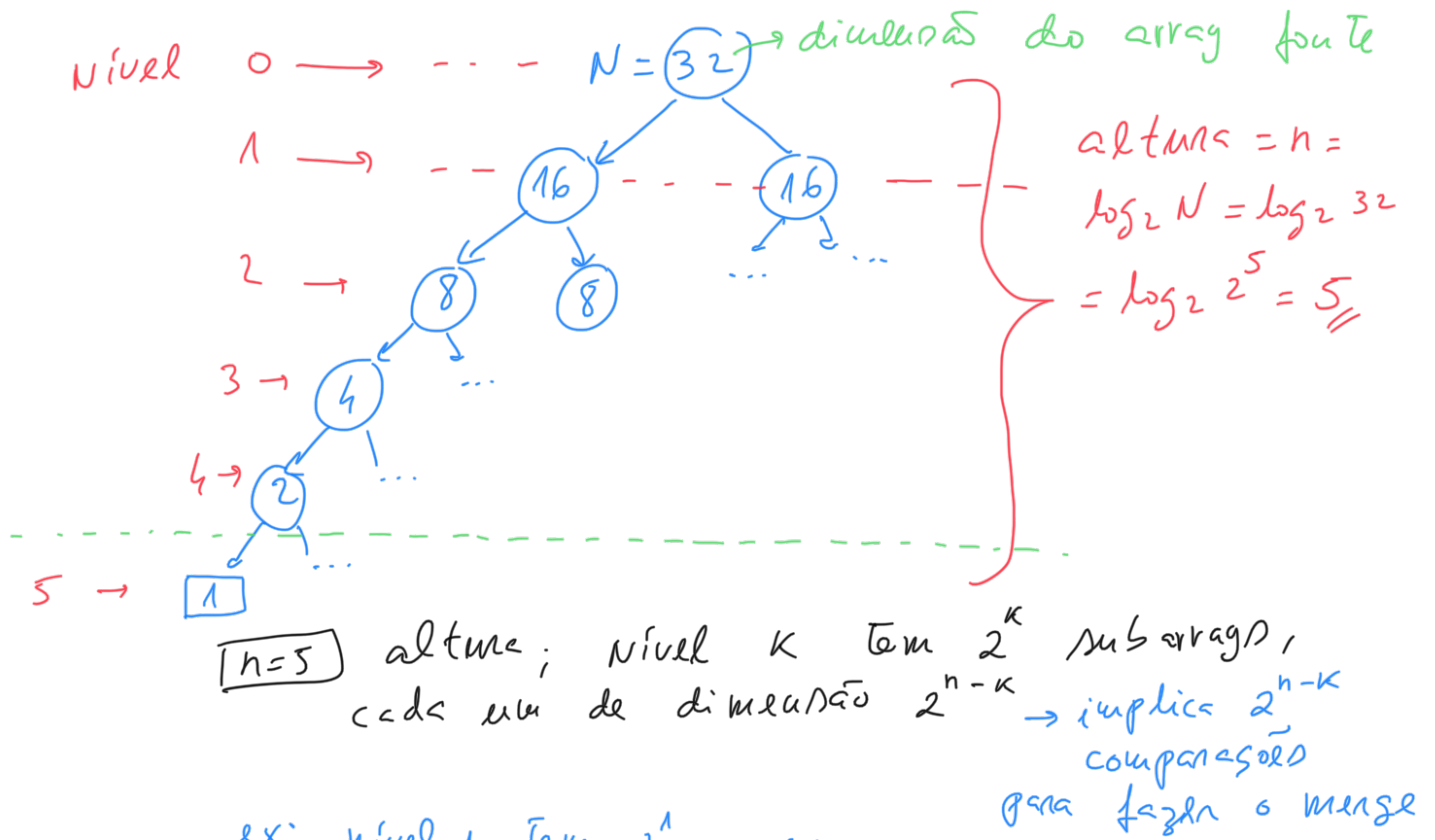 Nível 0 → - - - N = 32 → dimensão do array fonte
1 → - - 16 - - - - 16 — - -
altura = n =
log₂ N = log₂ 32
= log₂ 2⁵ = 5
2 → 8 8 ... ...
3 → 4 ...
4 → 2 ...
5 → 1 ...
n=5 altura; Nível K tem 2^K subarrays,
cada um de dimensão 2^(n-K) → implica 2^(n-K)
comparações
para fazer o merge
ex: nível 1 tem 2¹